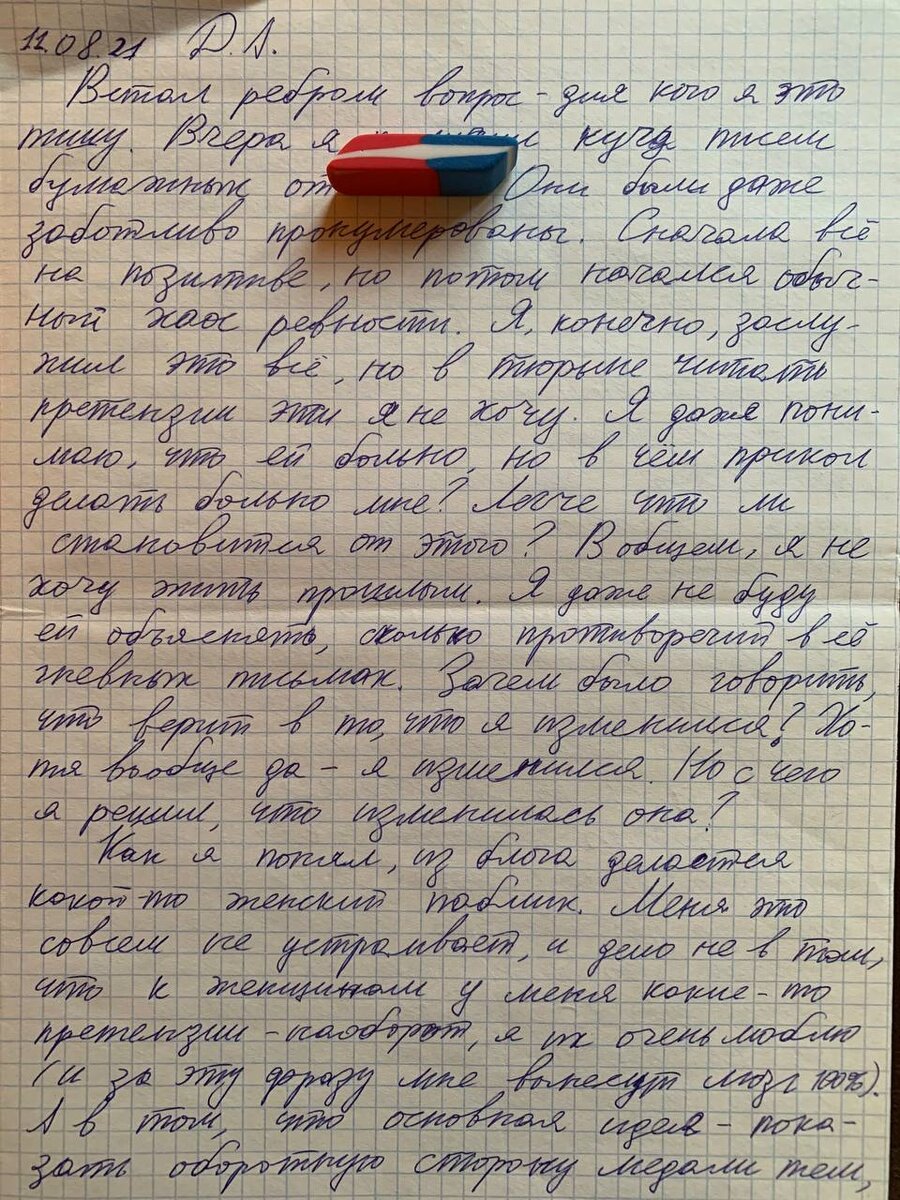 11.08.21 Д.А.
Встал ребром вопрос - для кого я это
пишу. Вчера я куча писем
бумажных от Они были даже
заботливо пронумерованы. Сначала всё
на позитиве, но потом начался обыч-
ный хаос ревности. Я, конечно, заслу-
жил это всё, но в тюрьме читать
претензии эти я не хочу. Я даже пони-
маю, что ей больно, но в чём прикол
делать больно мне? Легче что ли
становится от этого? В общем, я не
хочу жить прошлым. Я даже не буду
ей объяснять, сколько противоречий в её
гневных письмах. Зачем было говорить,
что верит в то, что я изменился? Хо-
тя вообще да - я изменился. Но с чего
я решил, что изменилась она?
Как я понял, из блога делается
какой-то женский паблик. Меня это
совсем не устраивает, и дело не в том,
что к женщинам у меня какие-то
претензии - наоборот, я их очень люблю
(и за эту фразу мне вынесут мозг 100%).
А в том, что основная идея - пока-
зать оборотную сторону медали тем,